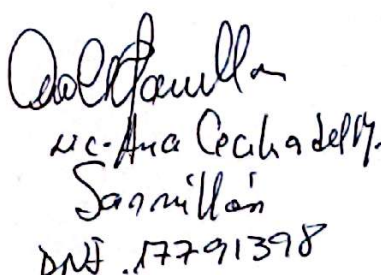 Lic. Ana Cecilia del M.
Sanmillán
DNI. 17791398